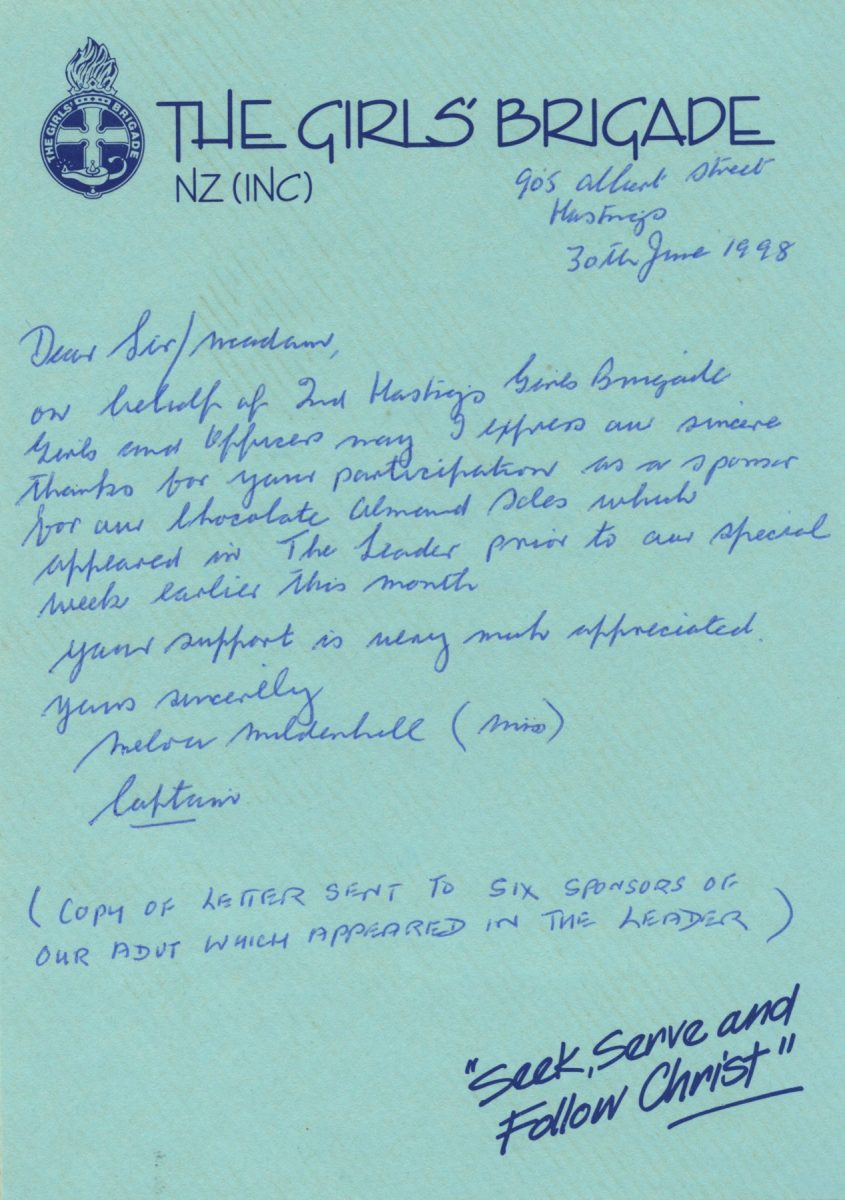 THE GIRLS' BRIGADE
THE GIRLS' BRIGADE
NZ (INC)
905 Albert Street
Hastings
30th June 1998
Dear Sir/Madam,
On behalf of 2nd Hastings Girls Brigade
Girls and Officers may I express our sincere
thanks for your participation as a sponsor
for our Chocolate Almond Sales which
appeared in The Leader prior to our special
week earlier this month
Your support is very much appreciated.
Yours sincerely
Melva Mildenhall (Miss)
Captain
(COPY OF LETTER SENT TO SIX SPONSORS OF
OUR ADVT WHICH APPEARED IN THE LEADER)
"Seek, Serve and
Follow Christ"